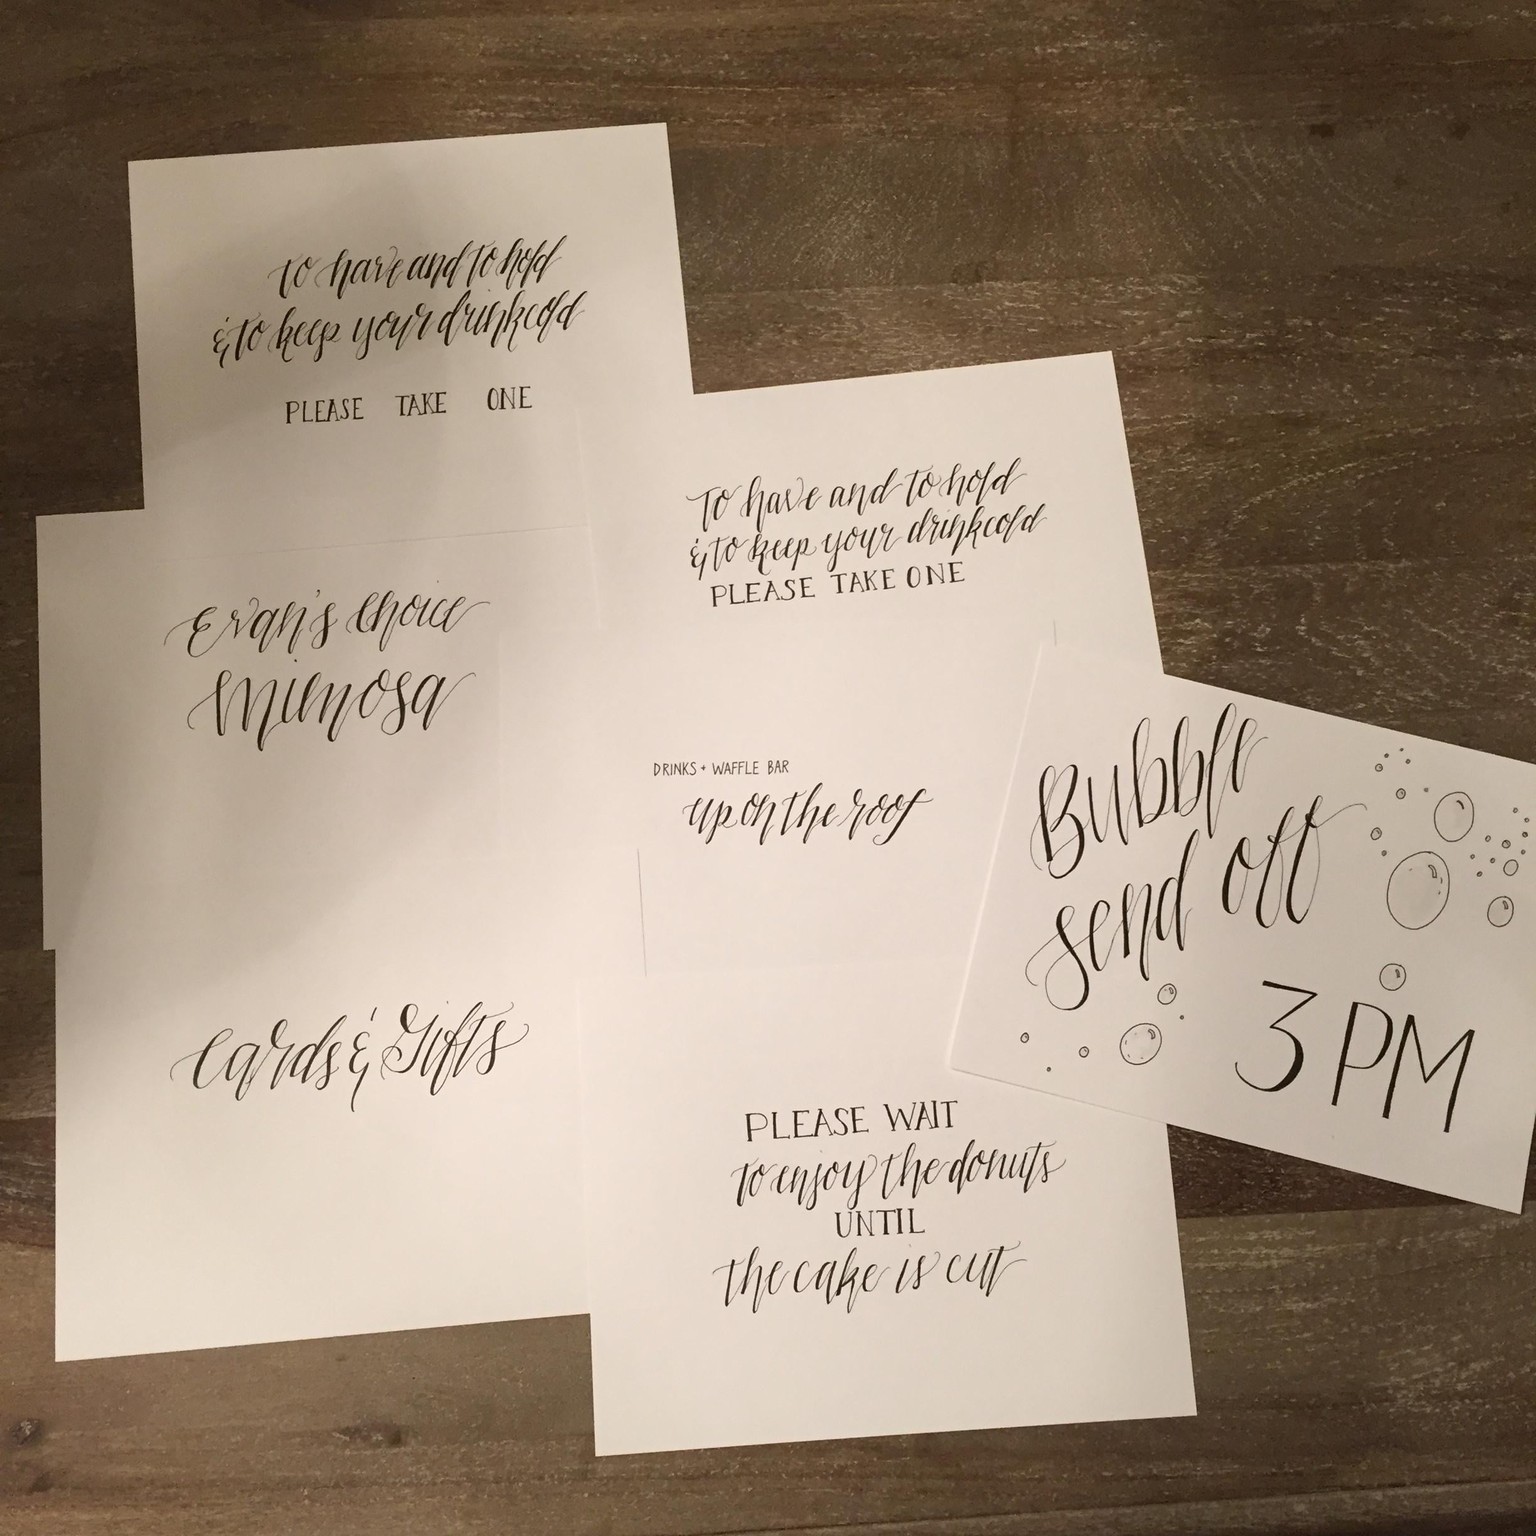 to have and to hold
& to keep your drink cold
PLEASE TAKE ONE
To have and to hold
& to keep your drink cold
PLEASE TAKE ONE
Evan's Choice
Mimosa
DRINKS + WAFFLE BAR
up on the roof
Bubble
send off
3 PM
Cards & Gifts
PLEASE WAIT
to enjoy the donuts
UNTIL
the cake is cut